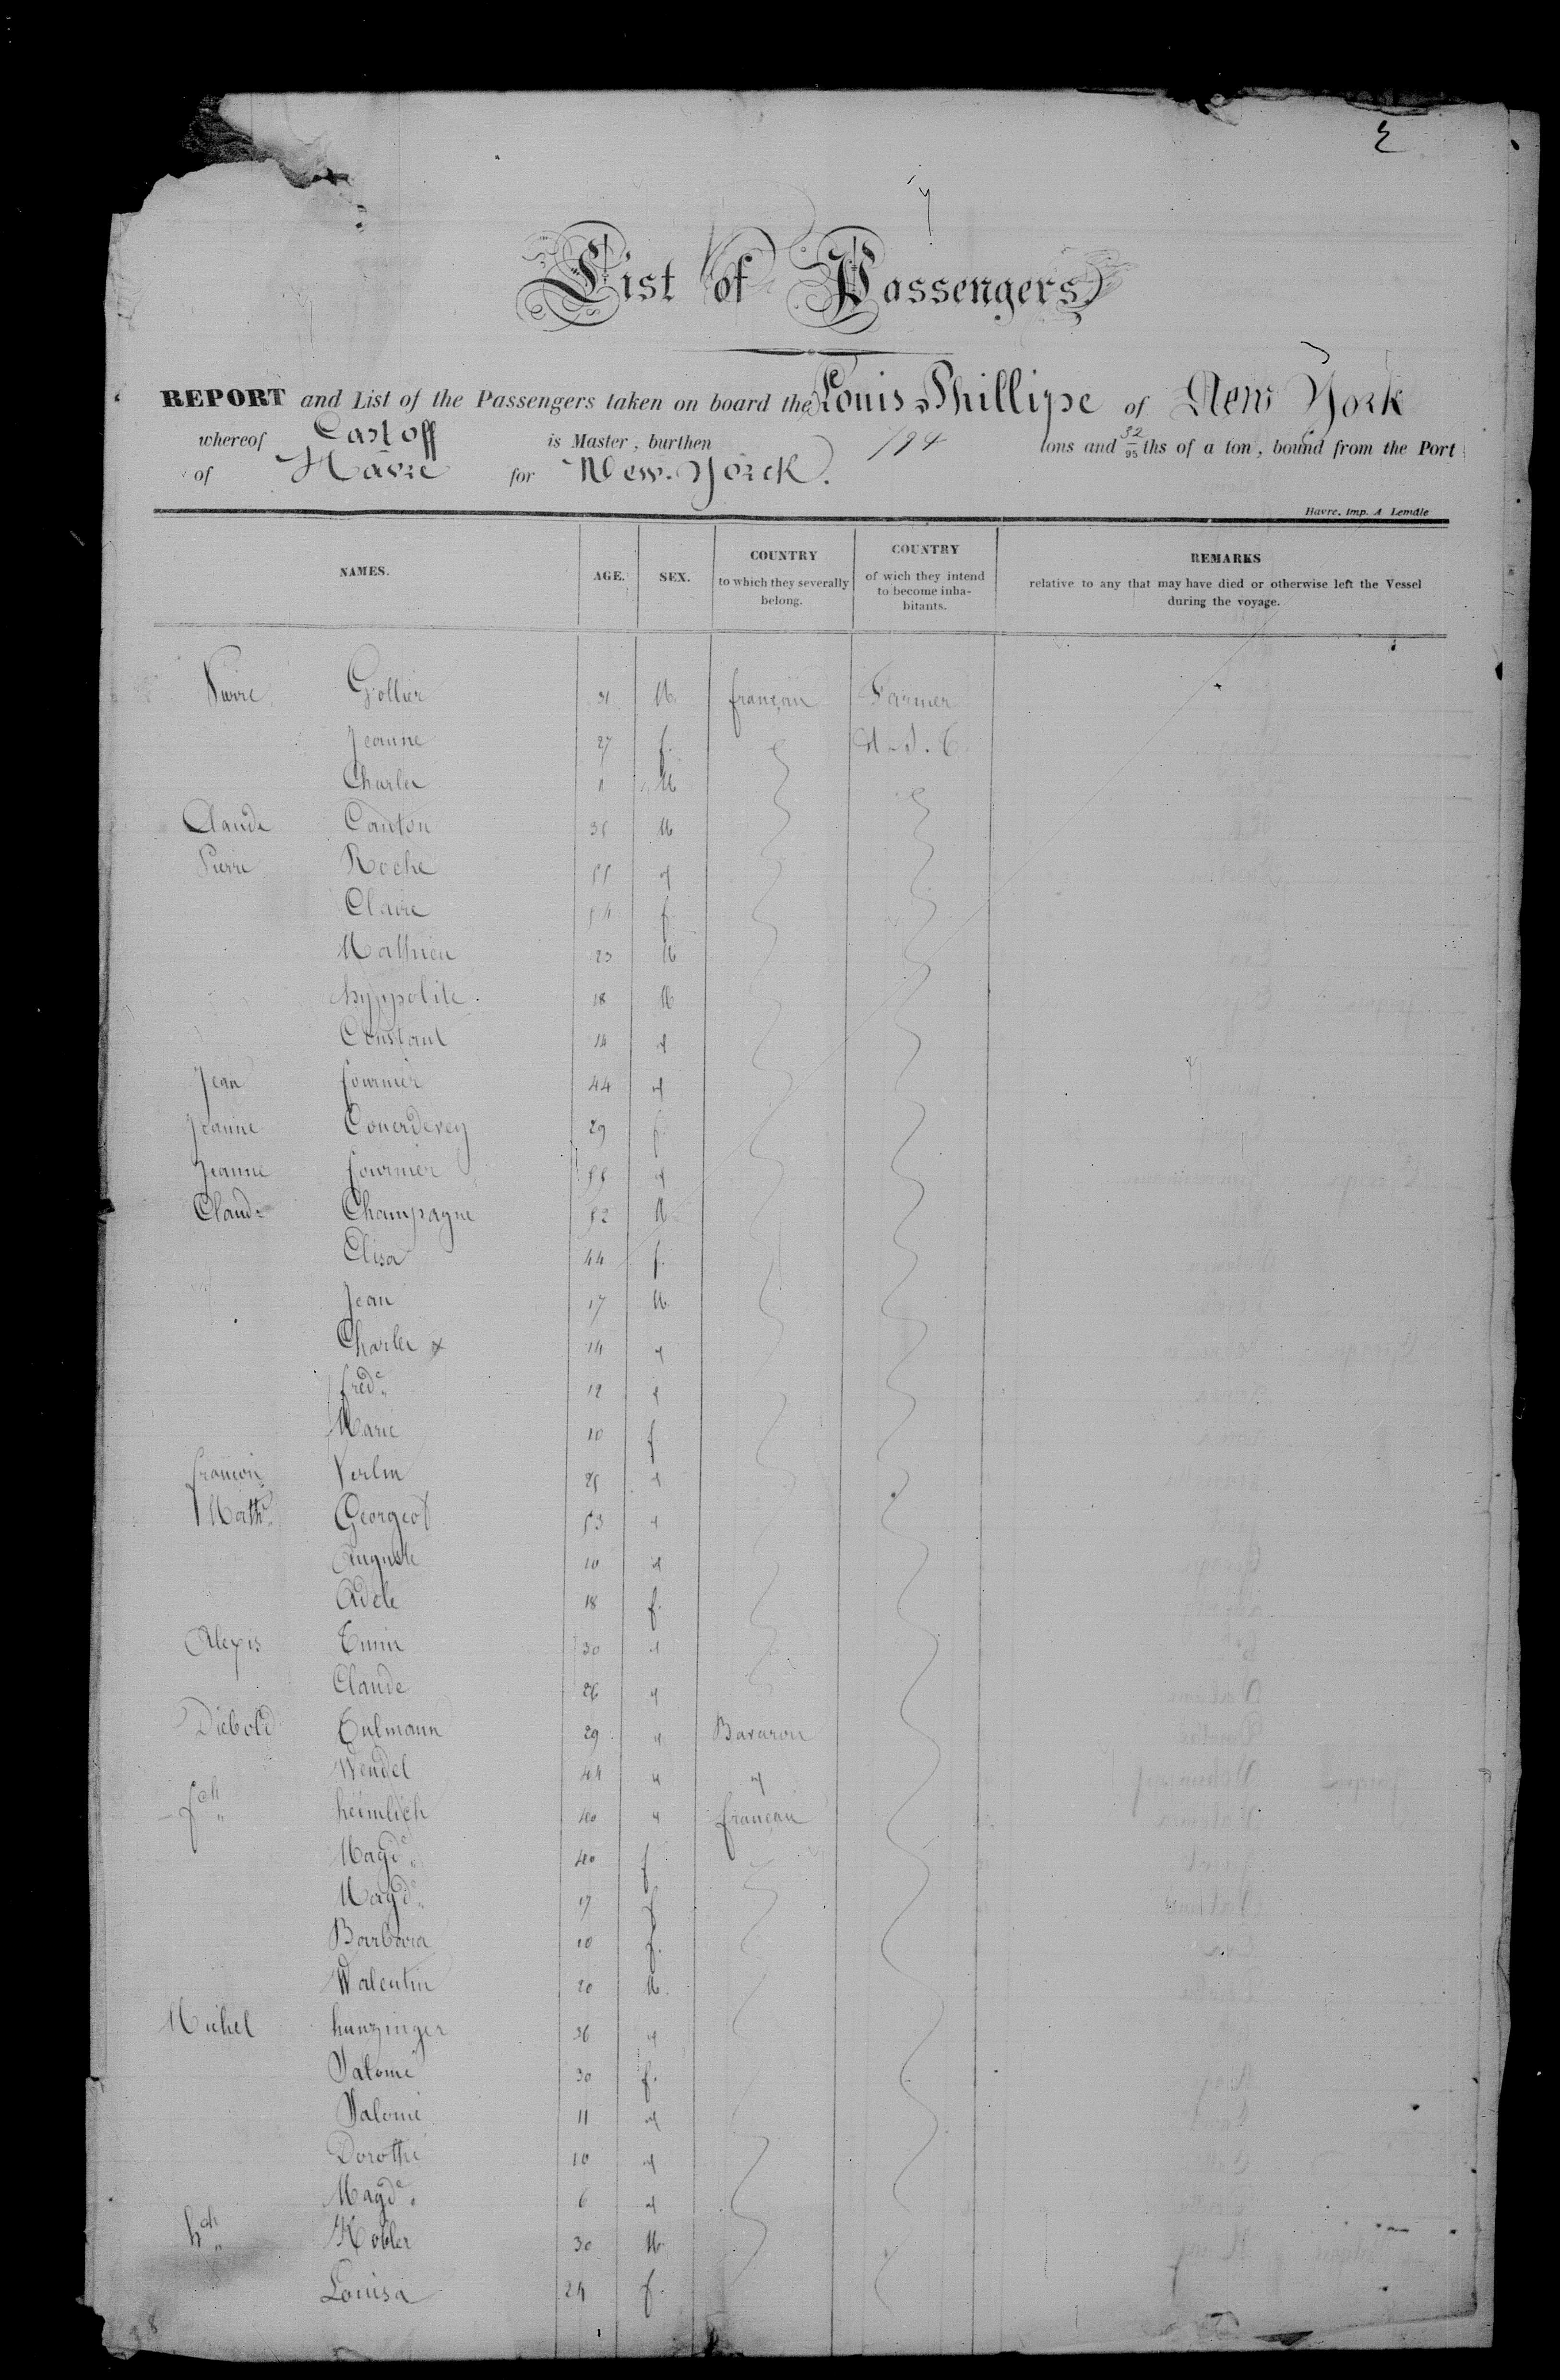 List of Passengers
REPORT and List of the Passengers taken on board the Louis Phillipe of New York
whereof Castoff is Master, burthen 794 tons and 32/95 ths of a ton, bound from the Port
of Havre for New-Yorck.
Havre, imp. A Lemâle
NAMES. AGE. SEX. COUNTRY to which they severally belong. COUNTRY of wich they intend to become inhabitants. REMARKS relative to any that may have died or otherwise left the Vessel during the voyage.
Pierre Gollier 31 M. français Farmer
Jeanne 27 f.
Charles 1 M
Claude Canton M
Pierre Roche 55 "
Claire 54 f.
Mathieu 23 M
hyppolite. 18 M
Constant 14 "
Jean fournier 44 "
Jeanne Couerdevey 29 f.
Jeanne fournier "
Claude Champagne 52 M
Elisa 44 f.
Jean 17 M.
Charles x 14 "
fredc. 12 "
Marie 10 f
francois Verlin 25 "
Math. Georgeot 53 "
Auguste 10 "
Adele 18 f.
Alexis 30 "
Claude 26 "
Diebold Culmann 29 " Bavarois
Wendel 44 " "
fch " heimlich 40 " francais
Magde. 40 f
Magde. 17 f
Barbara 10 f.
Walentin 20 M.
Michel hunzinger 36 "
Salomé 30 f.
Salomé 11 "
Dorothé 10 "
Magde. 6 "
hch " Kobler 30 M
Louisa 24 f.